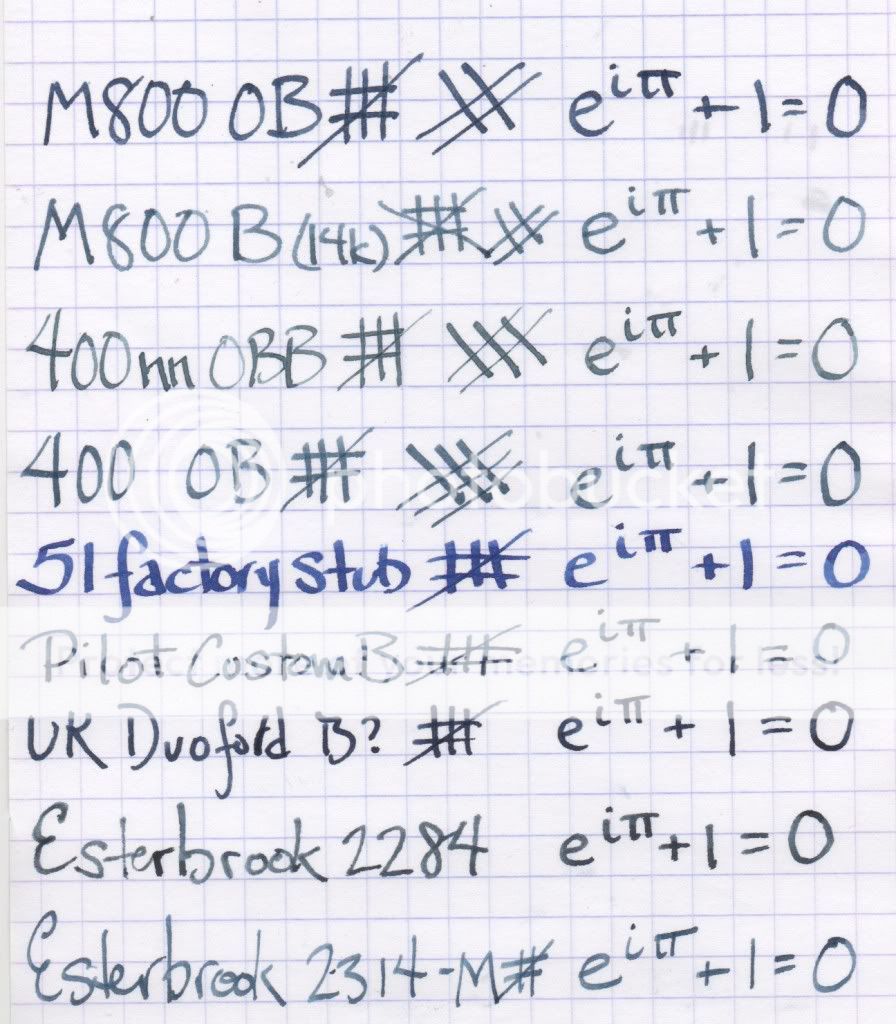 M800 OB e^{iπ} + 1 = 0
M800 B (14k) e^{iπ} + 1 = 0
400nn OBB e^{iπ} + 1 = 0
400 OB e^{iπ} + 1 = 0
photobucket
51 factory stub e^{iπ} + 1 = 0
Pilot Custom B e^{iπ} + 1 = 0
Protect more of your memories for less!
UK Duofold B? e^{iπ} + 1 = 0
Esterbrook 2284 e^{iπ} + 1 = 0
Esterbrook 2314-M e^{iπ} + 1 = 0